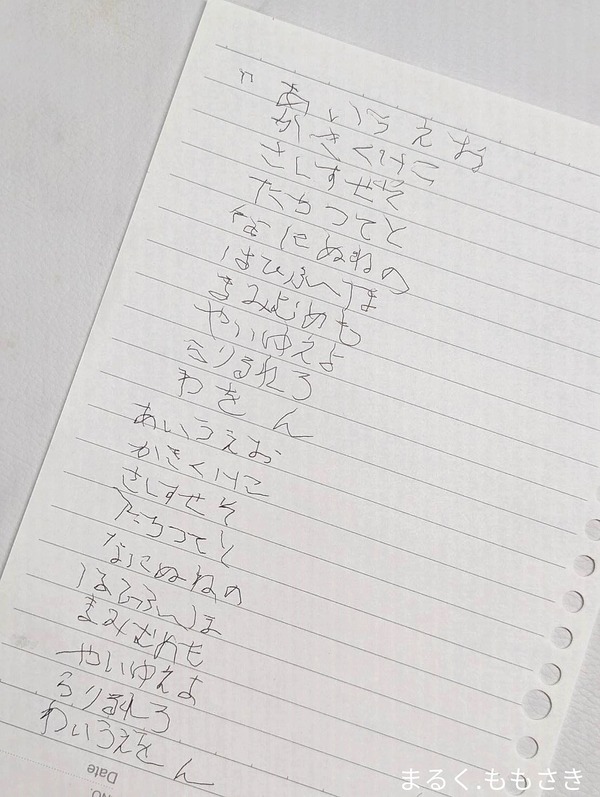 " あいうえお
かきくけこ
さしすせそ
たちつてと
なにぬねの
はひふへほ
まみむめも
やいゆえよ
らりるれろ
わをん
あいうえお
かきくけこ
さしすせそ
たちつてと
なにぬねの
はひふへほ
まみむめも
やいゆえよ
らりるれろ
わいうえをん
Date
No.
まるく.ももさき